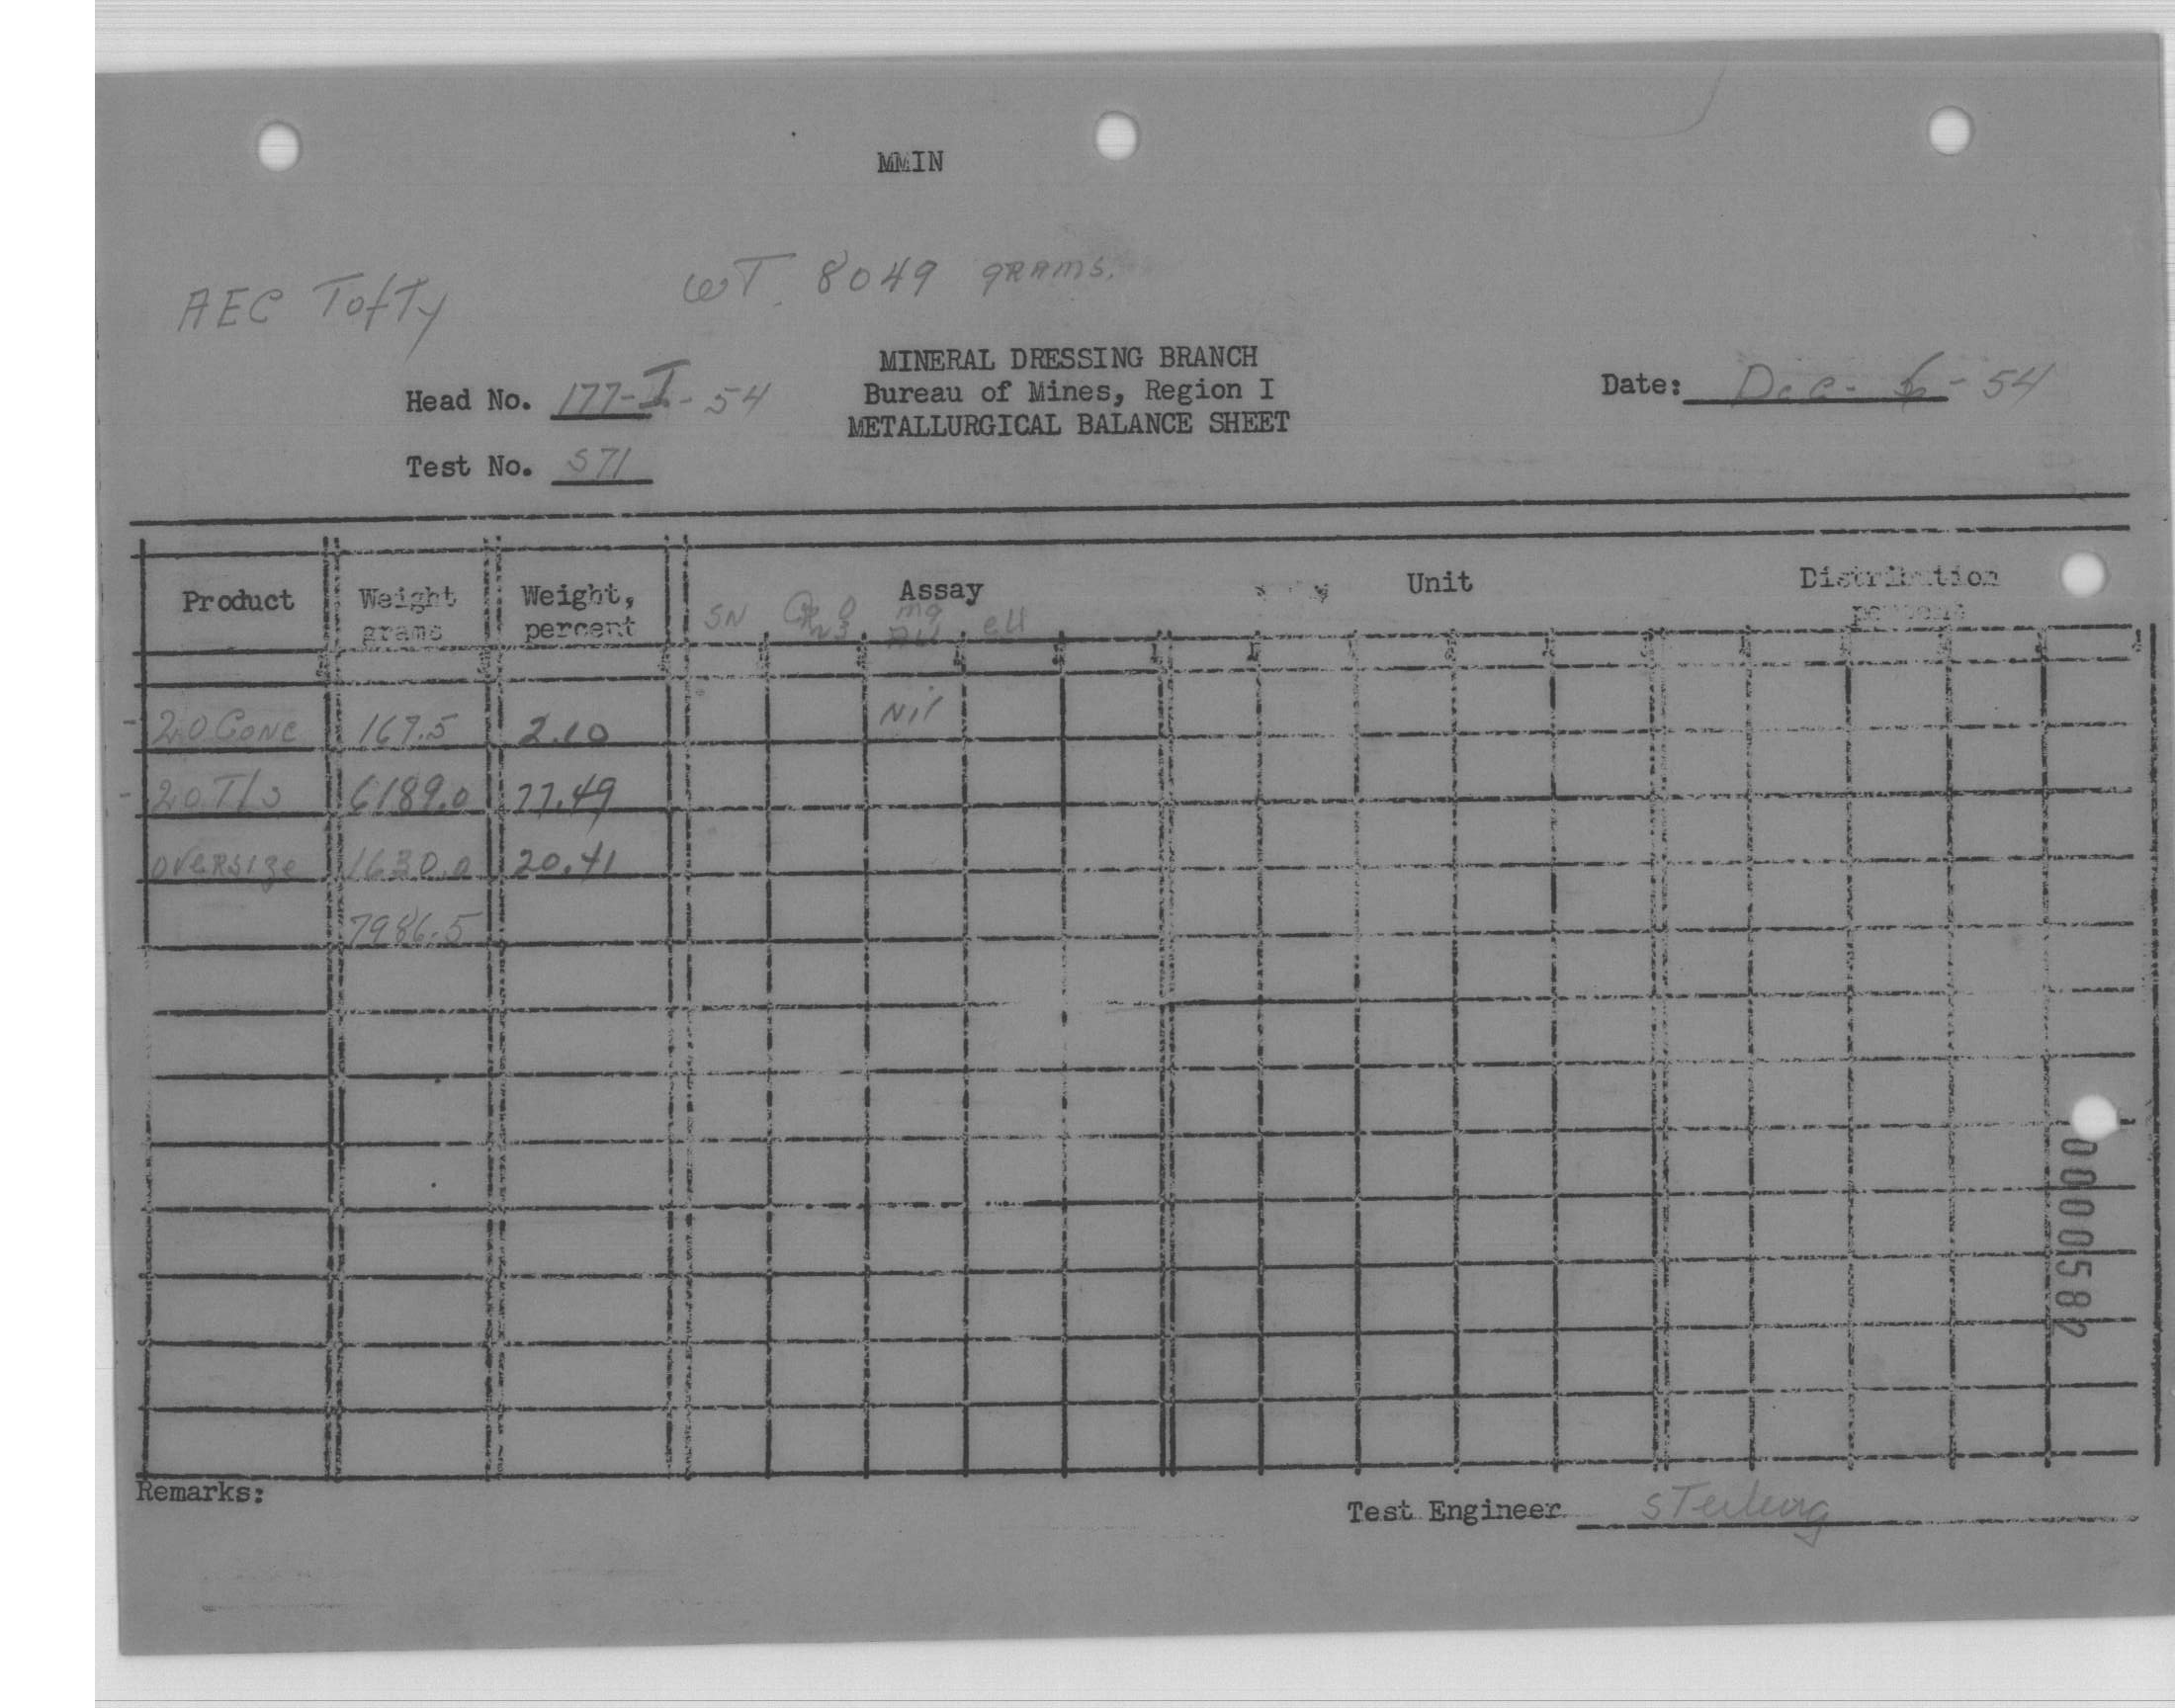 MMIN
AEC Tofty
WT. 8049 GRAMS.
MINERAL DRESSING BRANCH
Bureau of Mines, Region I
METALLURGICAL BALANCE SHEET
Head No. 177-I-54
Date: Dec- -54
Test No. 571
Product Weight grams Weight, percent Assay Unit Distribution percent
SN mg eU
Nil
-20 Conc 167.5 2.10
-20 Tls 6189.0 77.49
oversize 1630.0 20.41
7986.5
0000582
Remarks:
Test Engineer Sterling